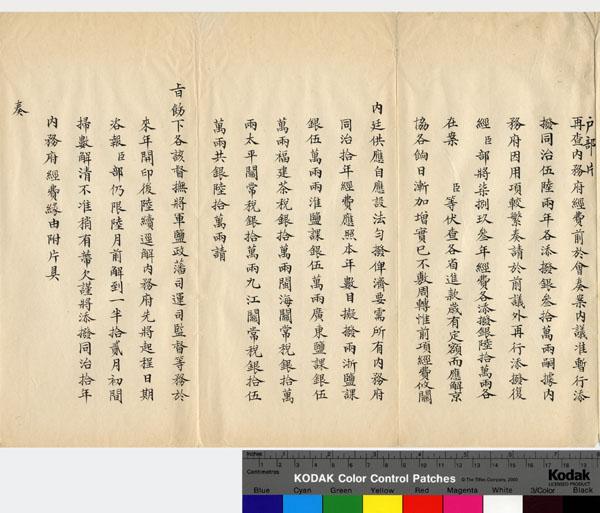 戶部片
再查內務府經費前於會奏案內議准暫行添
撥同治伍陸兩年各添撥銀叁拾萬兩嗣據內
務府因用項較繁奏請於前議外再行添撥復
經臣部將柒捌玖叁年經費各添撥銀陸拾萬兩各
在案 臣等伏查各省進款歲有定額而應解京
協各餉日漸加增實已不敷周轉惟前項經費攸關
內廷供應自應設法勻撥俾濟要需所有內務府
同治拾年經費應照本年數目擬撥兩浙鹽課
銀伍萬兩兩淮鹽課銀伍萬兩廣東鹽課銀伍
萬兩福建茶稅銀拾萬兩閩海關常稅銀拾萬
兩太平關常稅銀拾萬兩九江關常稅銀拾伍
萬兩共銀陸拾萬兩請
旨飭下各該督撫將軍鹽政藩司運司監督等務於
來年開印後陸續運解內務府先將起程日期
咨報臣部仍限陸月前解到一半拾貳月初間
掃數解清不准稍有蒂欠謹將添撥同治拾年
內務府經費緣由附片具
奏
Inches
Centimetres
KODAK Color Control Patches
© The Tiffen Company, 2000
Kodak
LICENSED PRODUCT
Blue Cyan Green Yellow Red Magenta White 3/Color Black